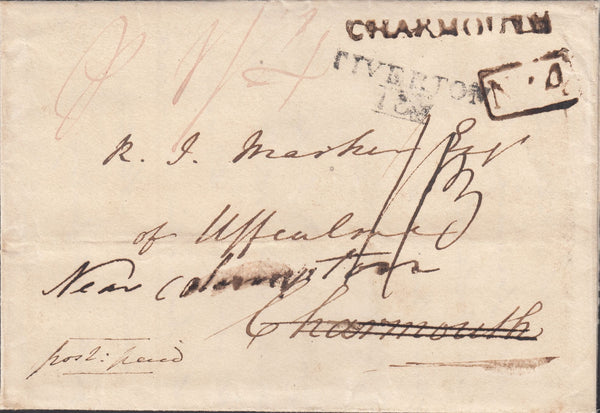 CHARMOUTH
TIVERTON
No. 4
R. J. Marker Esqr
of Uffculme
Near
Charmouth
post: paid